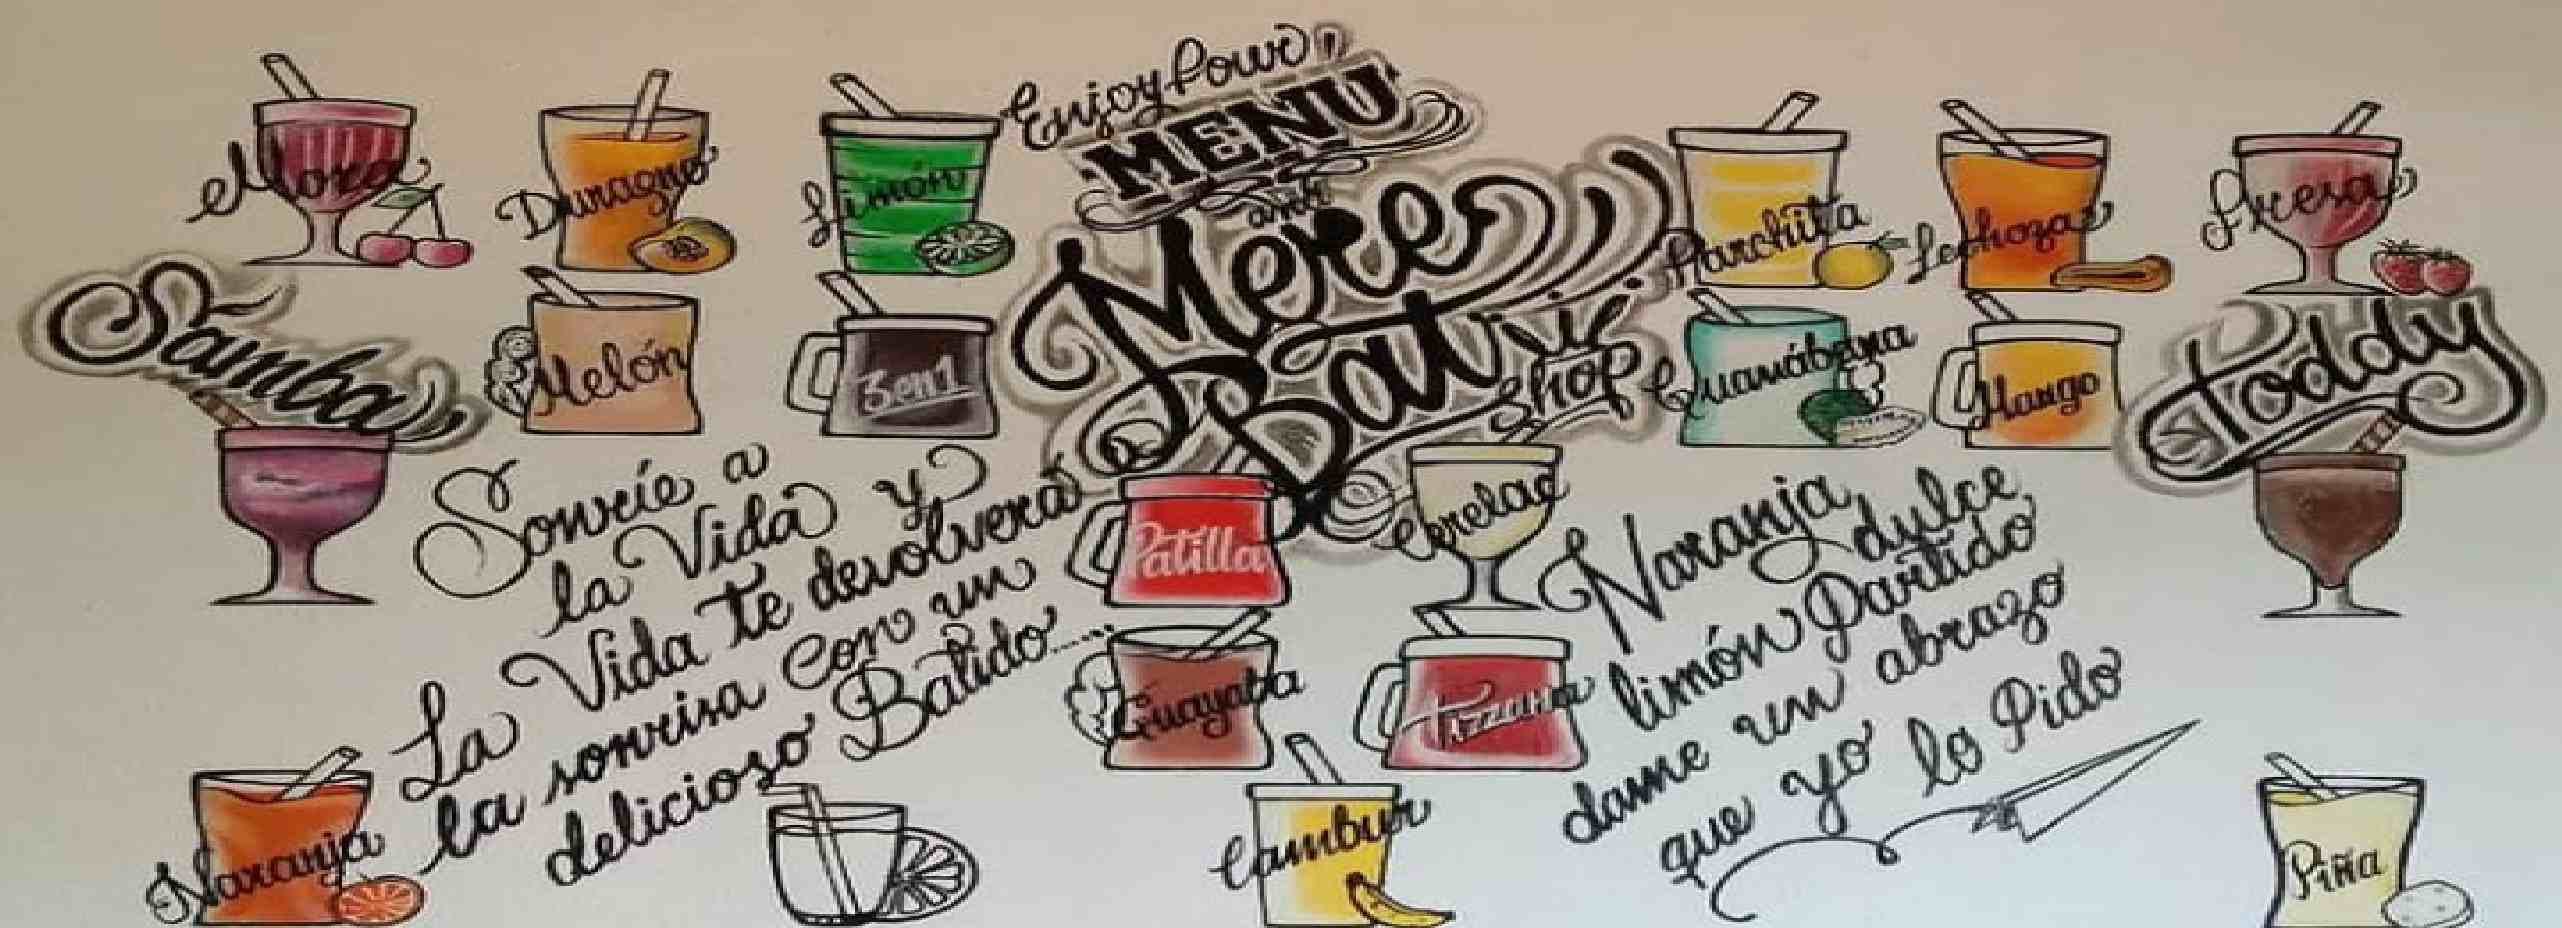 Enjoy Your
MENU
and
Mere
Bativi
Shop
Mora
Durazno
Limón
Parchita
Lechoza
Fresa
Samba
Melón
3en1
Guanábana
Mango
Toddy
Sonríe a
la Vida y
La Vida te devolverá
la sonrisa con un
delicioso Batido.....
Patilla
Cerelac
Guayaba
Naranja dulce
limón Partido
dame un abrazo
que yo lo Pido
Naranja
Cambur
Piña